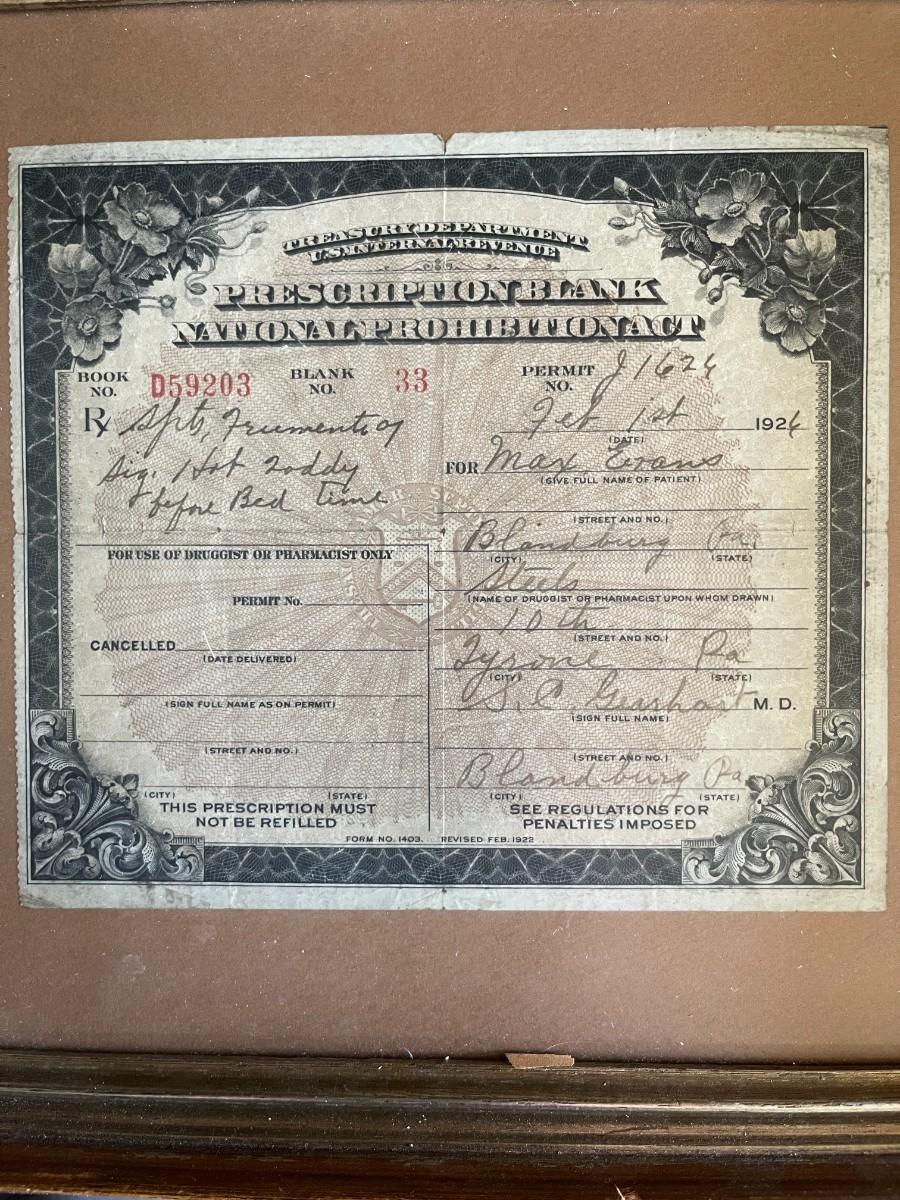 TREASURY DEPARTMENT
U.S. INTERNAL REVENUE
PRESCRIPTION BLANK
NATIONAL PROHIBITION ACT
BOOK NO. D59203 BLANK NO. 33 PERMIT NO. J 1624
Rx Spts, Frumenti
Sig. Hot Toddy
before Bed time
Feb 1st 1926
(DATE)
FOR Max Evans
(GIVE FULL NAME OF PATIENT)
(STREET AND NO.)
Blandburg Pa
(CITY) (STATE)
Steels
(NAME OF DRUGGIST OR PHARMACIST UPON WHOM DRAWN)
10th
(STREET AND NO.)
Tyrone Pa
(CITY) (STATE)
S. C. Gearhart M. D.
(SIGN FULL NAME)
(STREET AND NO.)
Blandburg Pa
(CITY) (STATE)
SEE REGULATIONS FOR
PENALTIES IMPOSED
FOR USE OF DRUGGIST OR PHARMACIST ONLY
PERMIT No.
CANCELLED
(DATE DELIVERED)
(SIGN FULL NAME AS ON PERMIT)
(STREET AND NO.)
(CITY) (STATE)
THIS PRESCRIPTION MUST
NOT BE REFILLED
FORM NO. 1403. REVISED FEB. 1922